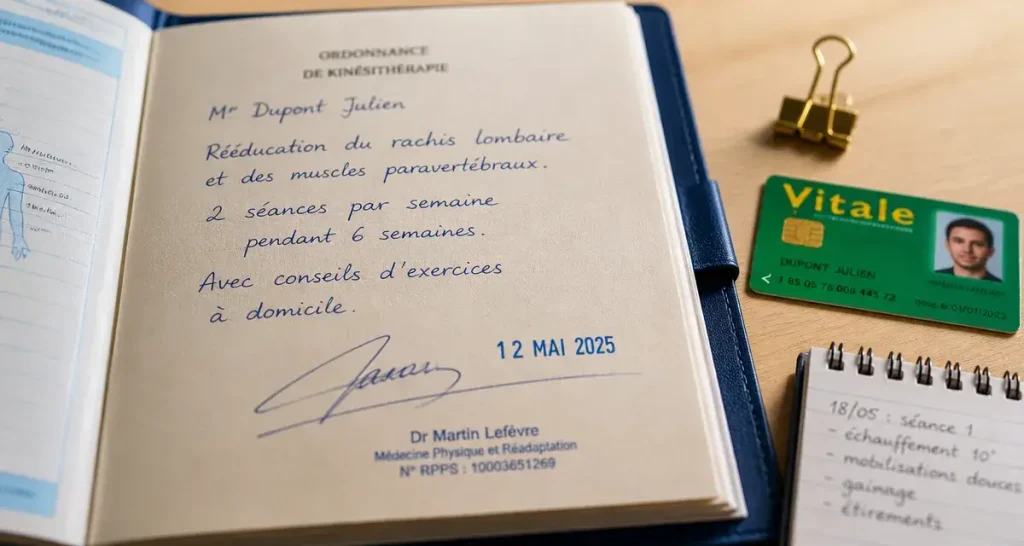 ORDONNANCE
DE KINÉSITHÉRAPIE
Mr Dupont Julien
Rééducation du rachis lombaire
et des muscles paravertébraux.
2 séances par semaine
pendant 6 semaines.
Avec conseils d'exercices
à domicile.
12 MAI 2025
Dr Martin Lefèvre
Médecine Physique et Réadaptation
N° RPPS : 10003651269
Vitale
DUPONT JULIEN
18/05 : séance 1
- échauffement 10'
- mobilisations douces
- gainage
- étirements